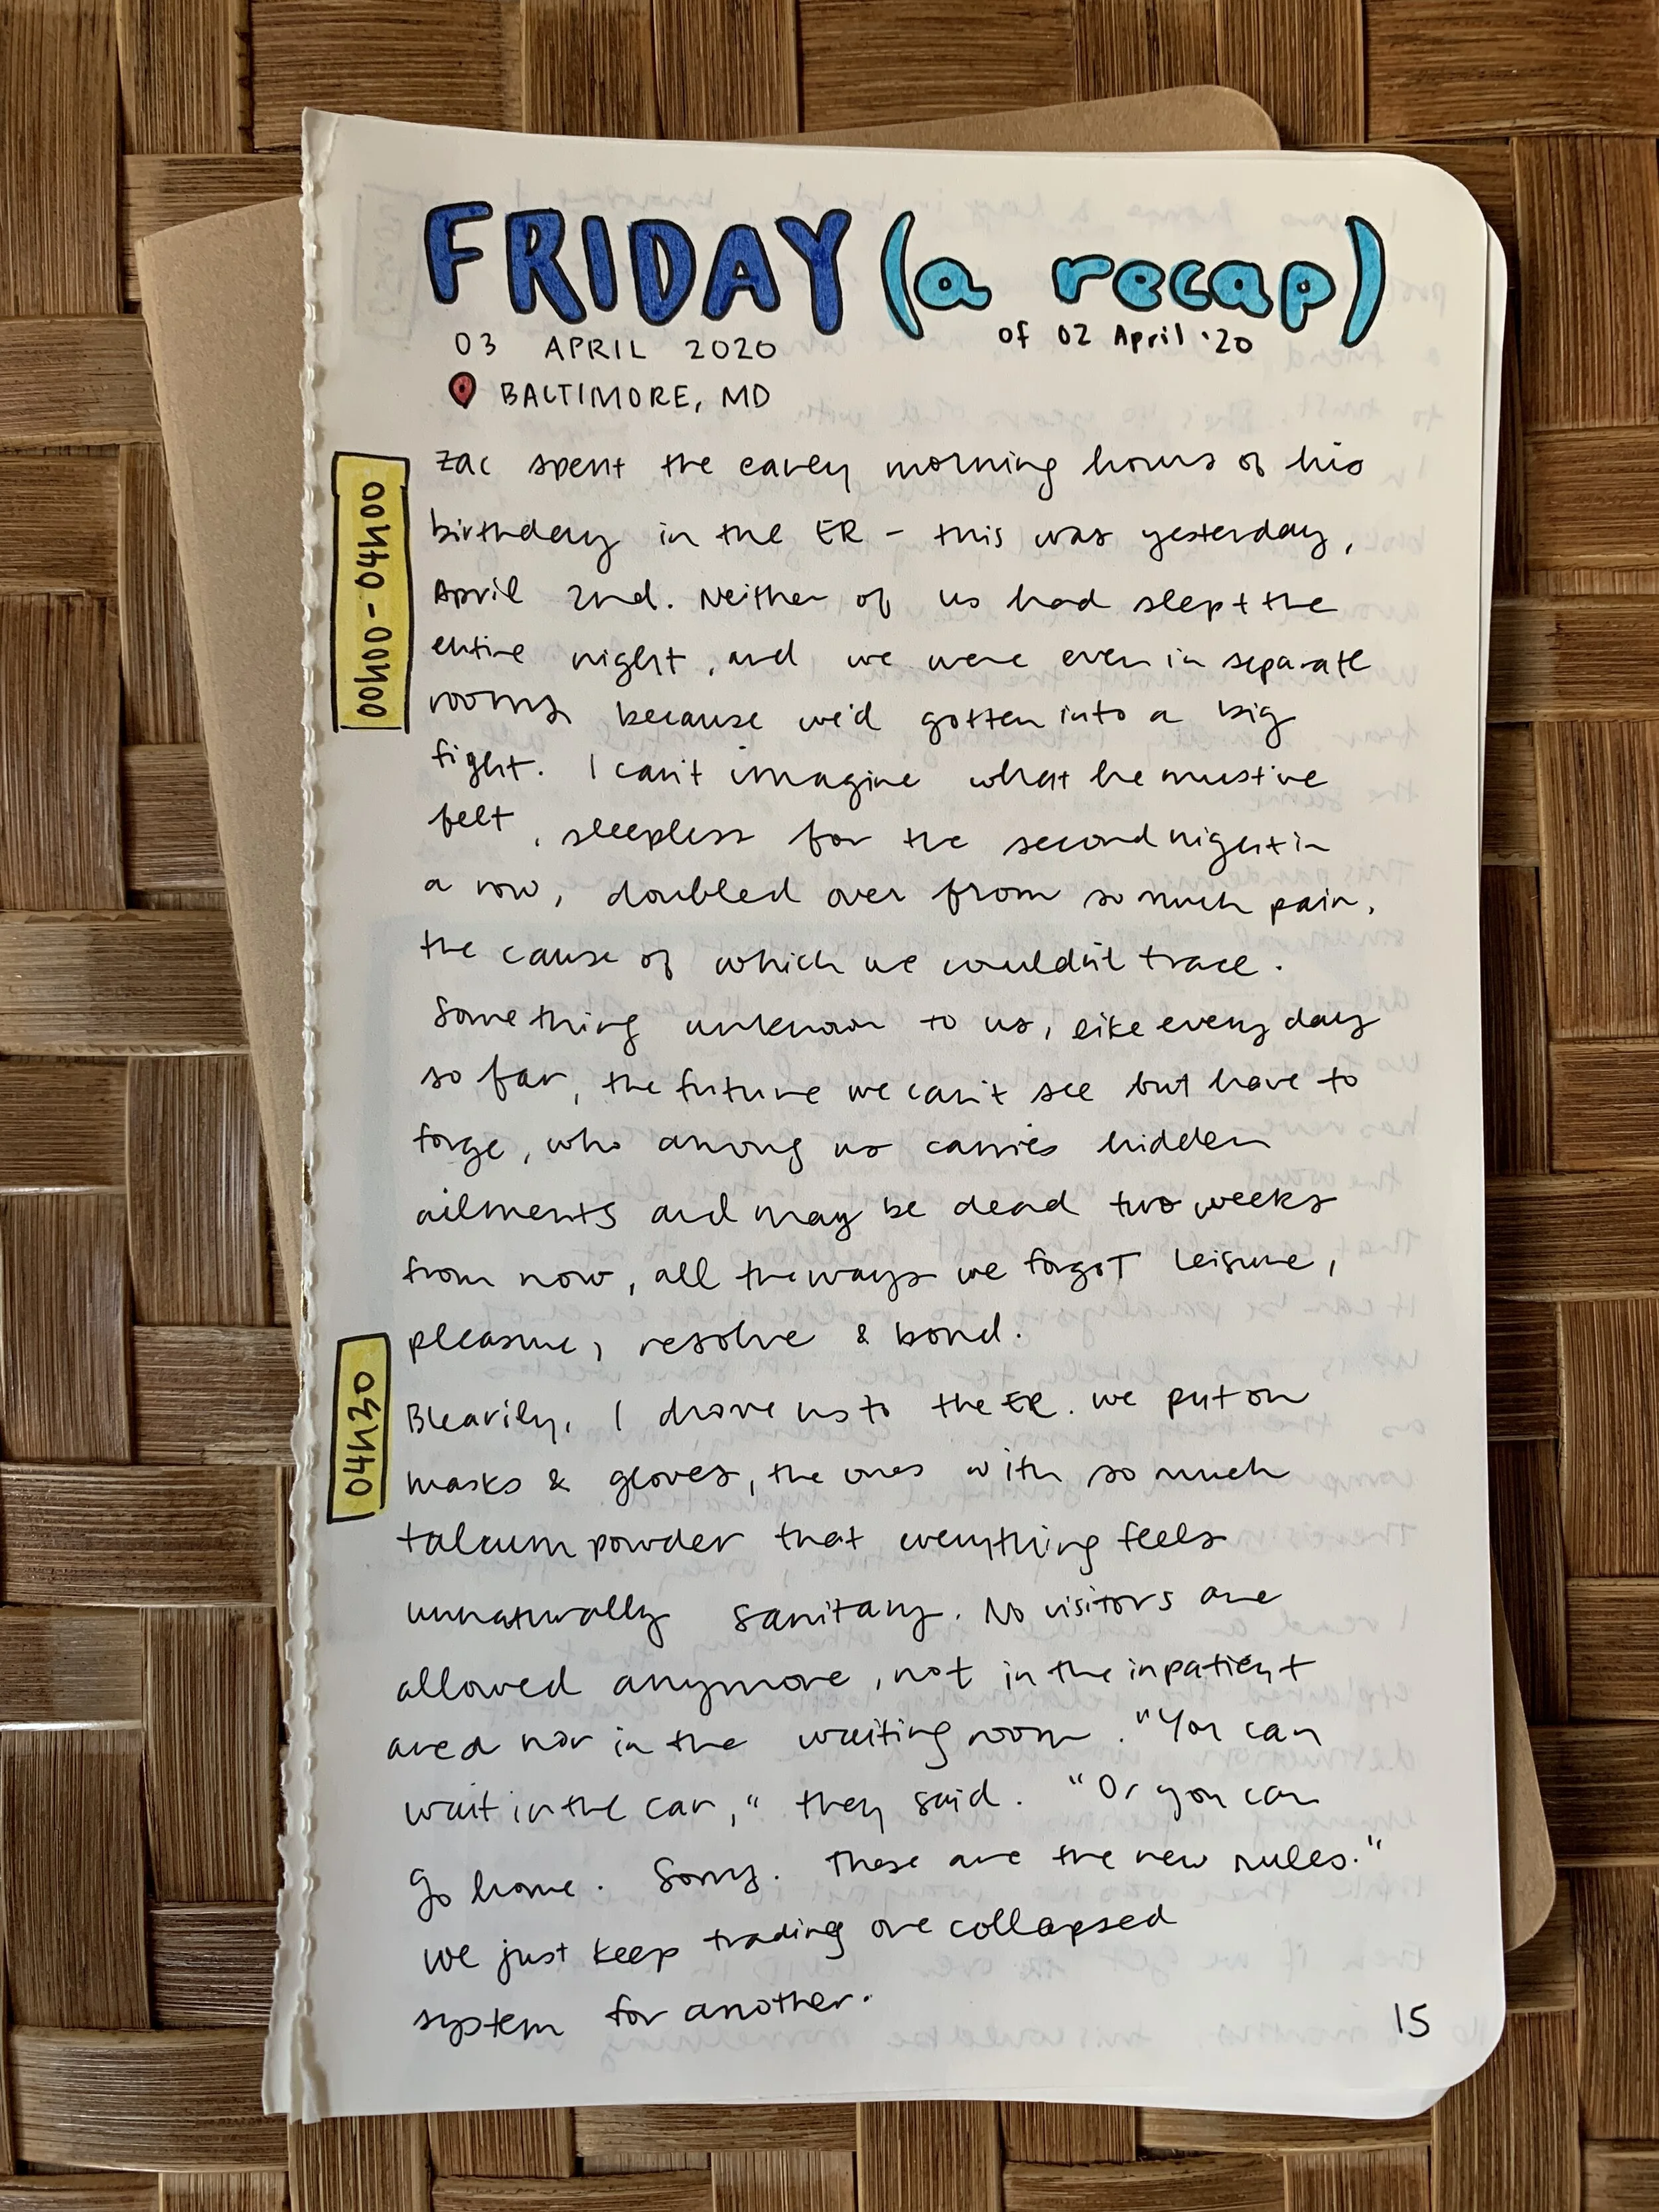 FRIDAY (a recap)
03 APRIL 2020 of 02 April '20
BALTIMORE, MD
00h00 - 04h00
Zac spent the early morning hours of his
birthday in the ER - this was yesterday,
April 2nd. Neither of us had slept the
entire night, and we were even in separate
rooms because we'd gotten into a big
fight. I can't imagine what he must've
felt, sleepless for the second night in
a row, doubled over from so much pain,
the cause of which we couldn't trace.
Something unknown to us, like every day
so far, the future we can't see but have to
forge, who among us carries hidden
ailments and may be dead two weeks
from now, all the ways we forgot leisure,
pleasure, resolve & bond.
04h30
Blearily, I drove us to the ER. We put on
masks & gloves, the ones with so much
talcum powder that everything feels
unnaturally sanitary. No visitors are
allowed anymore, not in the inpatient
area nor in the waiting room. "You can
wait in the car," they said. "Or you can
go home. Sorry. These are the new rules."
We just keep trading one collapsed
system for another.
15